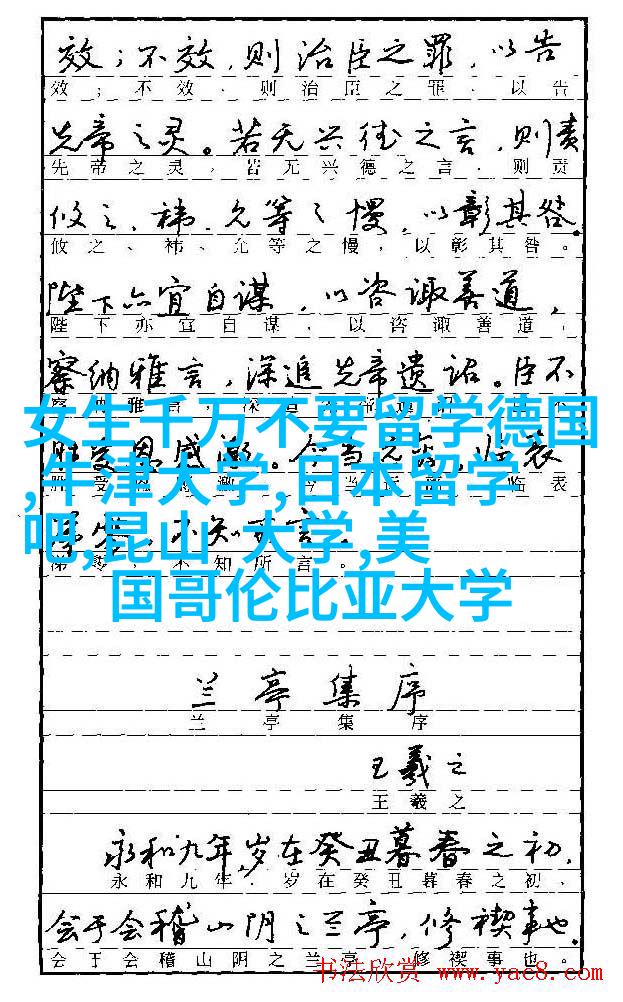 效；不效，则治臣之罪，以告
效；不效、则治臣之罪、以告
先帝之灵。若无兴德之言，则责
先帝之灵，若无兴德之言，则责
攸之、祎、允等之慢，以彰其咎。
攸之、祎、允等之慢，以彰其咎。
陛下亦宜自谋，以咨诹善道，
陛下亦宜自谋，以咨诹善道，
察纳雅言，深追先帝遗诏。臣不
女生千万不要留学德国
,牛津大学,日本留学
吧,昆山 大学,美
国哥伦比亚大学
受恩感激。今当远离，临表
临表
不知所言。
兰亭集序
兰亭集序
王羲之
王羲之
永和九年，岁在癸丑暮春之初，
永和九年，岁在癸丑暮春之初、
会于会稽山阴之兰亭，修禊事也。
会于会稽山阴之兰亭，修禊事也。
书法欣赏 www.yac8.com